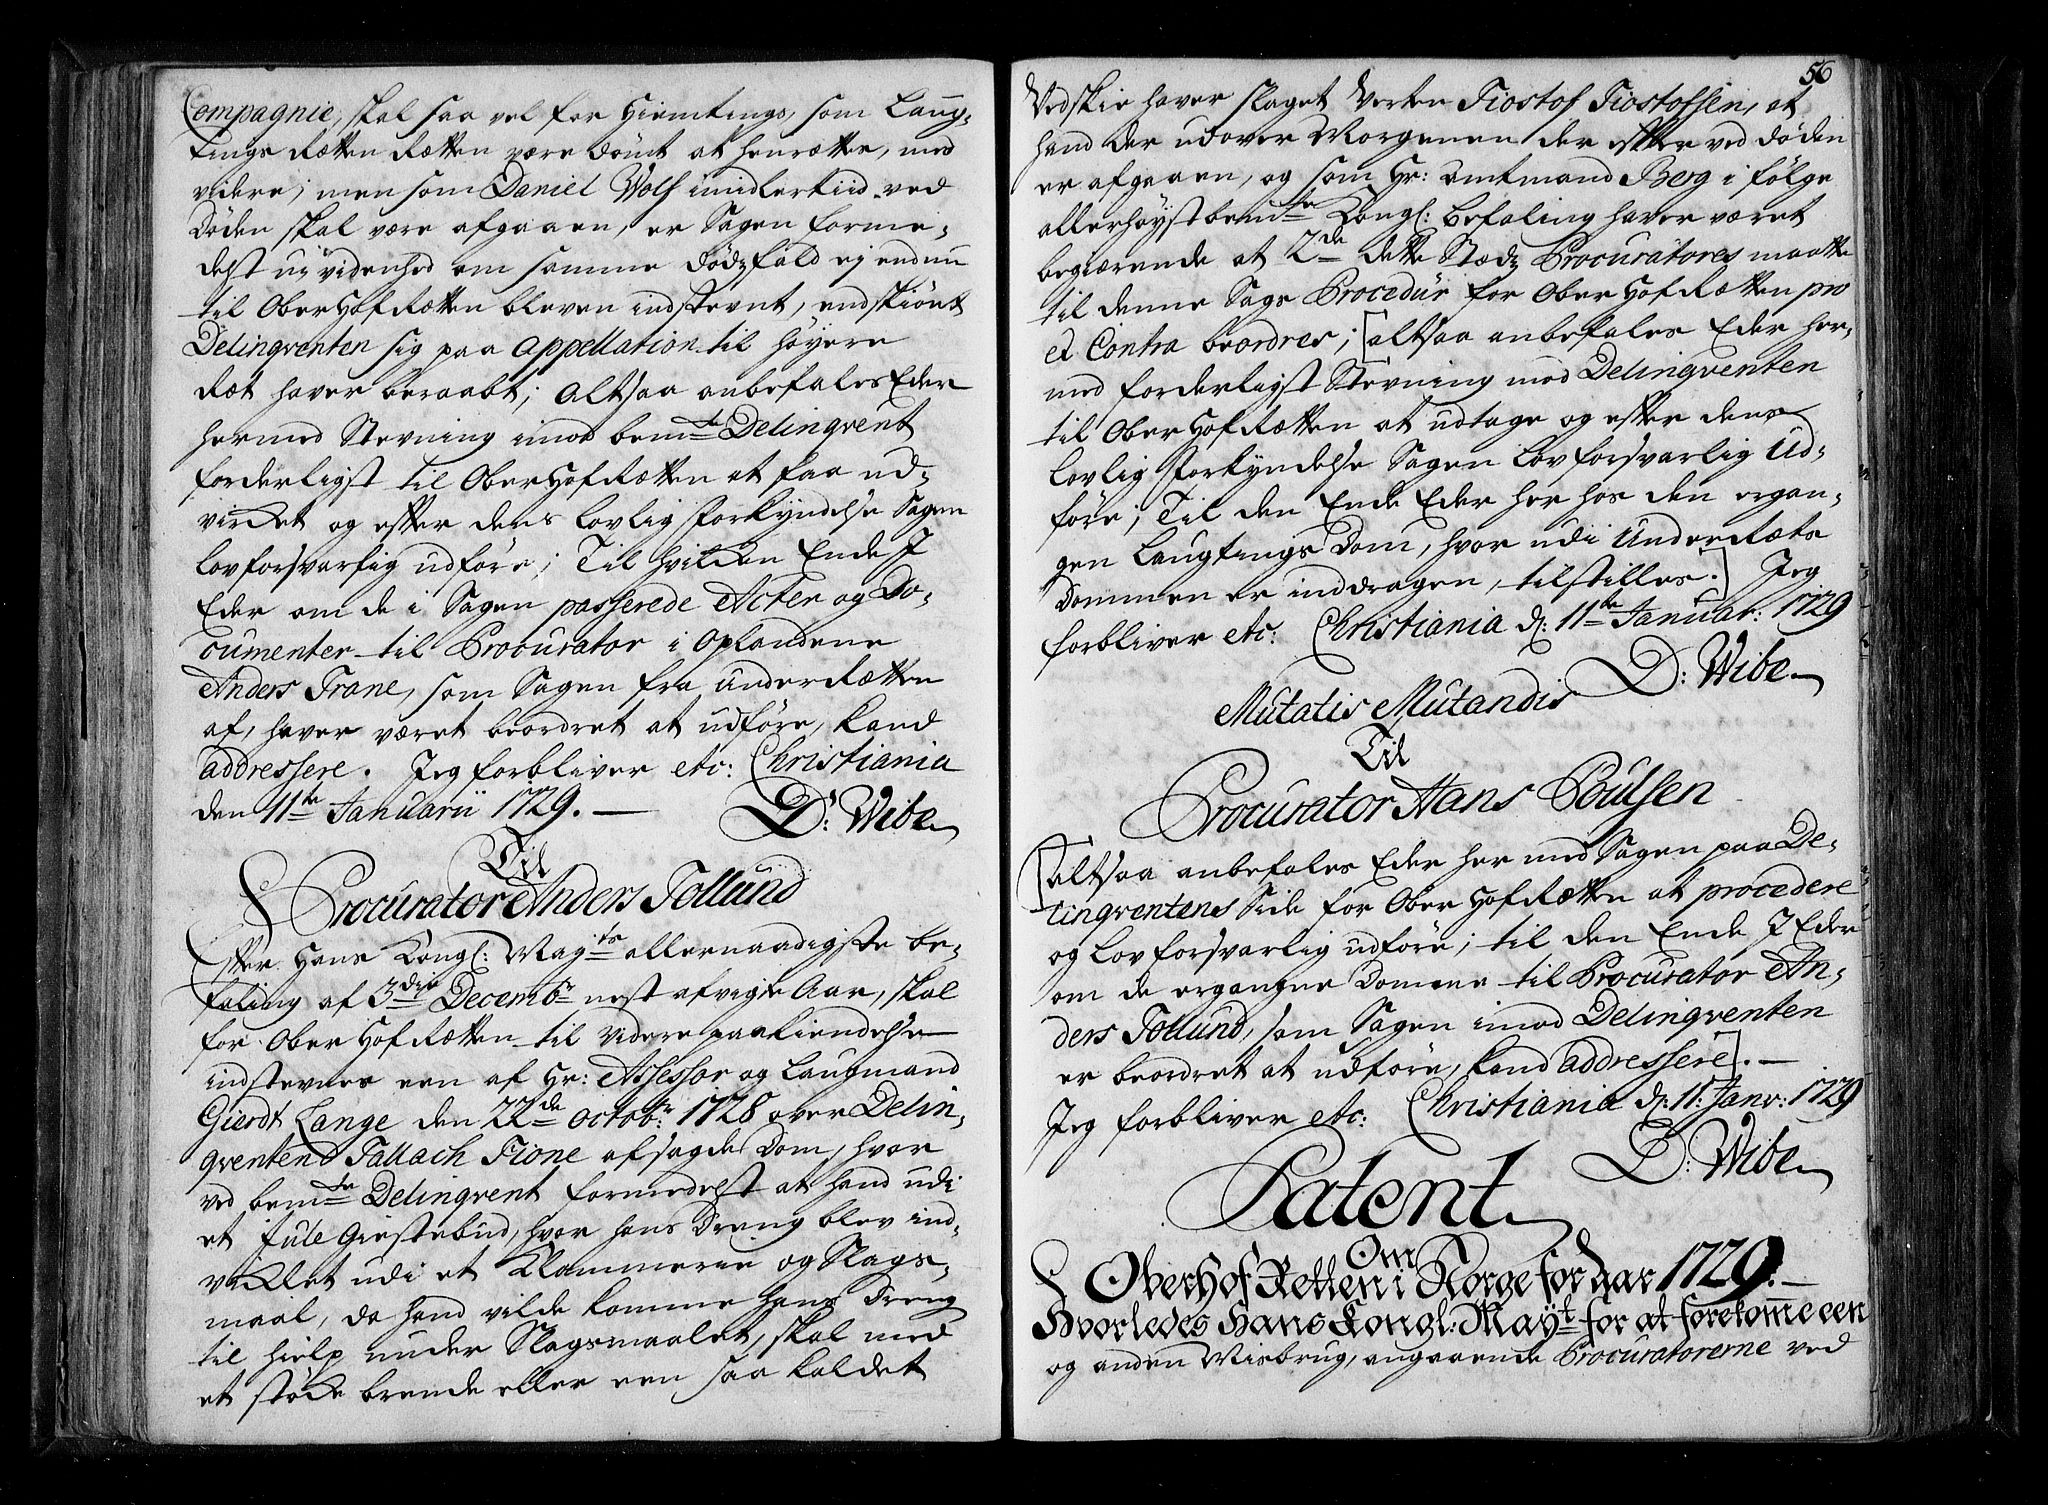 Compagnie, skal saa vel for Hiemtings, som Laug-
tings Rætten Rætten være dömt at henrettes, med
videre; men som Daniel Wolf imidlertiid ved
Döden skal være afgaaen, er Sagen forme-
delst uvidenhed om samme dödsfald ej endnu
til Ober Hof Rætten bleven indstevnt, endskiönt
Delinqventen sig paa Appellation til höyere
Ræt haver beraabt; Altsaa anbefales Eder
hermed Stevning imod bemte Delinqvent
forderligst til Ober Hof Rætten at faa ud-
virket og efter dens lovlig forkyndelse Sagen
lovforsvarlig udföre; Til hvilken Ende I
Eder om de i Sagen passerede Acter og Do-
cumenter til Procurator i Oplandene
Anders Trane, som Sagen fra under Rætten
af, haver været beordret at udföre, kand
addressere. Jeg forbliver etc: Christiania
den 11te Januarii 1729. —
D: Wibe
Til
Procurator Anders Tollund
Efter Hans Kongl: Maÿts allernaadigste be-
faling af 3die Decembr nest afvigte Aar, skal
for Ober Hof Rætten til videre paakiendelse
indstevnes een af Hr: Assessor og Laugmand
Gierdt Lange den 22de Octobr: 1728 over Delin-
qventen Tallach Fione afsagde Dom, hvor
ved bemte Delinqvent formedelst at hand udi
et Jule Giestebud, hvor hans Dreng blev ind-
viklet udi et Klammerie og Slags-
maal, da hand vilde komme hans Dreng
til hielp under Slagsmaalet, skal med
et stöcke brende eller een saa kaldet
56
Vedskie haver slaget Verten Tiostof Tiostofsen, at
hand der udover Morgenen der efter ved döden
er afgaaen, og som Hr: Amtmand Berg i fölge
allerhöystbemte Kongl: befaling haver været
begiærende at 2de dette Stæds Procuratores maatte
til denne Sags Procedur for Ober Hof Rætten pro
et Contra beordres; [altsaa anbefales Eder her-
med forderligst Stevning mod Delinqventen
til Ober Hof Rætten at udtage og efter dens
lovlig forkyndelse Sagen lovforsvarlig ud-
före; Til den Ende Eder her hos den ergan-
gen Laugtings Dom, hvor udi Under Ræts
Dommen er inddragen, tilstilles.] Jeg
forbliver etc: Christiania d: 11te Januar: 1729
D: Wibe
Mutatis Mutandis
Til
Procurator Hans Poulsen
[altsaa anbefales Eder her med Sagen paa De-
linqventens Side for Ober Hof Rætten at procedere
og lov forsvarlig udföre; til den Ende I Eder
om de ergangne Domme til Procurator An-
ders Tollund, som Sagen imod Delinqventen
er beordret at udföre, kand addressere]. —
Jeg forbliver etc: Christiania d: 11: Janv: 1729
D: Wibe
Patent
Om
Ober Hof Retten i Norge for aar 1729. —
Hvorledes Hans Kongl: Maÿt for at forekom̄e een
og anden Misbrug, angaaende Procuratorerne ved